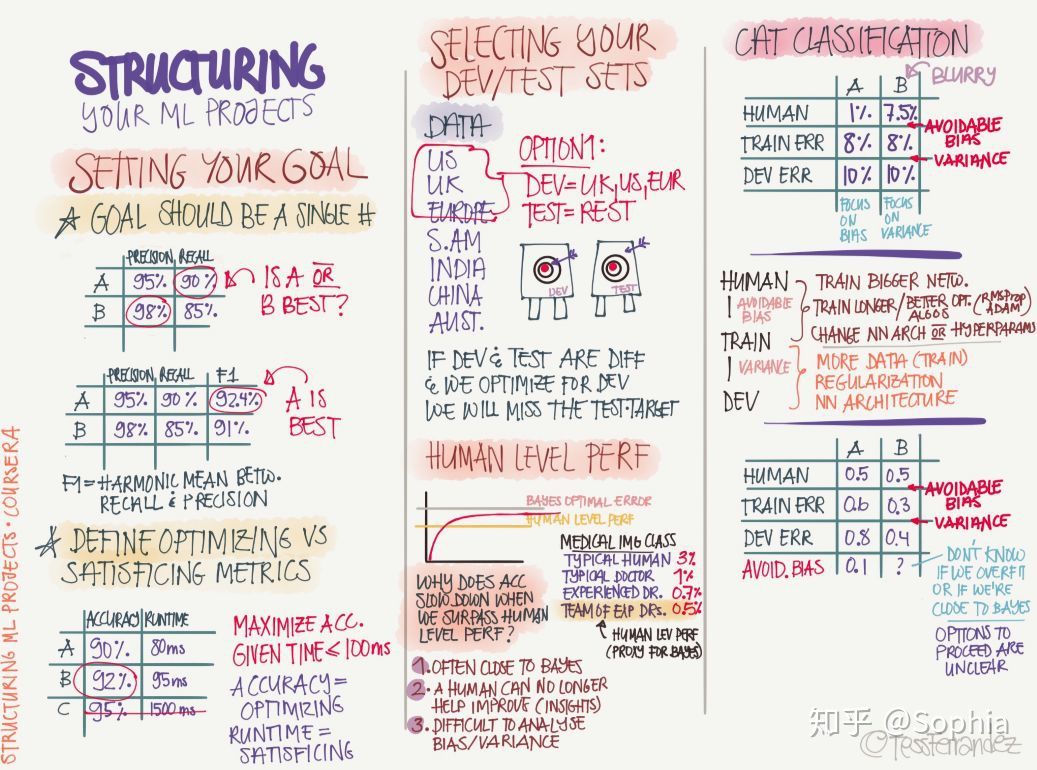 STRUCTURING
YOUR ML PROJECTS
SETTING YOUR GOAL
GOAL SHOULD BE A SINGLE #
PRECISION RECALL
A 95% 90%
B 98% 85%
IS A OR
B BEST?
PRECISION RECALL F1
A 95% 90% 92.4%
B 98% 85% 91%
A IS
BEST
F1 = HARMONIC MEAN BETW.
RECALL & PRECISION
DEFINE OPTIMIZING VS
SATISFICING METRICS
ACCURACY RUNTIME
A 90% 80ms
B 92% 95ms
C 95% 1500ms
MAXIMIZE ACC.
GIVEN TIME ≤ 100ms
ACCURACY =
OPTIMIZING
RUNTIME =
SATISFICING
STRUCTURING ML PROJECTS · COURSERA
SELECTING YOUR
DEV/TEST SETS
DATA
US
UK
EUROPE
S.AM
INDIA
CHINA
AUST.
OPTION1:
DEV = UK, US, EUR
TEST = REST
DEV
TEST
IF DEV & TEST ARE DIFF
& WE OPTIMIZE FOR DEV
WE WILL MISS THE TEST-TARGET
HUMAN LEVEL PERF
BAYES OPTIMAL ERROR
HUMAN LEVEL PERF
MEDICAL IMG CLASS
TYPICAL HUMAN 3%
TYPICAL DOCTOR 1%
EXPERIENCED DR. 0.7%
TEAM OF EXP DRS. 0.5%
HUMAN LEV PERF
(PROXY FOR BAYES)
WHY DOES ACC
SLOW DOWN WHEN
WE SURPASS HUMAN
LEVEL PERF?
1. OFTEN CLOSE TO BAYES
2. A HUMAN CAN NO LONGER
HELP IMPROVE (INSIGHTS)
3. DIFFICULT TO ANALYSE
BIAS/VARIANCE
CAT CLASSIFICATION
A B BLURRY
HUMAN 1% 7.5%
AVOIDABLE
BIAS
TRAIN ERR 8% 8%
VARIANCE
DEV ERR 10% 10%
FOCUS
ON
BIAS
FOCUS
ON
VARIANCE
HUMAN
AVOIDABLE
BIAS
TRAIN
VARIANCE
DEV
TRAIN BIGGER NETW.
TRAIN LONGER/BETTER OPT. ALGOS (RMSprop ADAM)
CHANGE NN ARCH OR HYPERPARAMS
MORE DATA (TRAIN)
REGULARIZATION
NN ARCHITECTURE
A B
HUMAN 0.5 0.5
AVOIDABLE
BIAS
TRAIN ERR 0.6 0.3
VARIANCE
DEV ERR 0.8 0.4
AVOID. BIAS 0.1 ?
DON'T KNOW
IF WE OVERFIT
OR IF WE'RE
CLOSE TO BAYES
OPTIONS TO
PROCEED ARE
UNCLEAR
知乎 @Sophia
©TessFerrandez